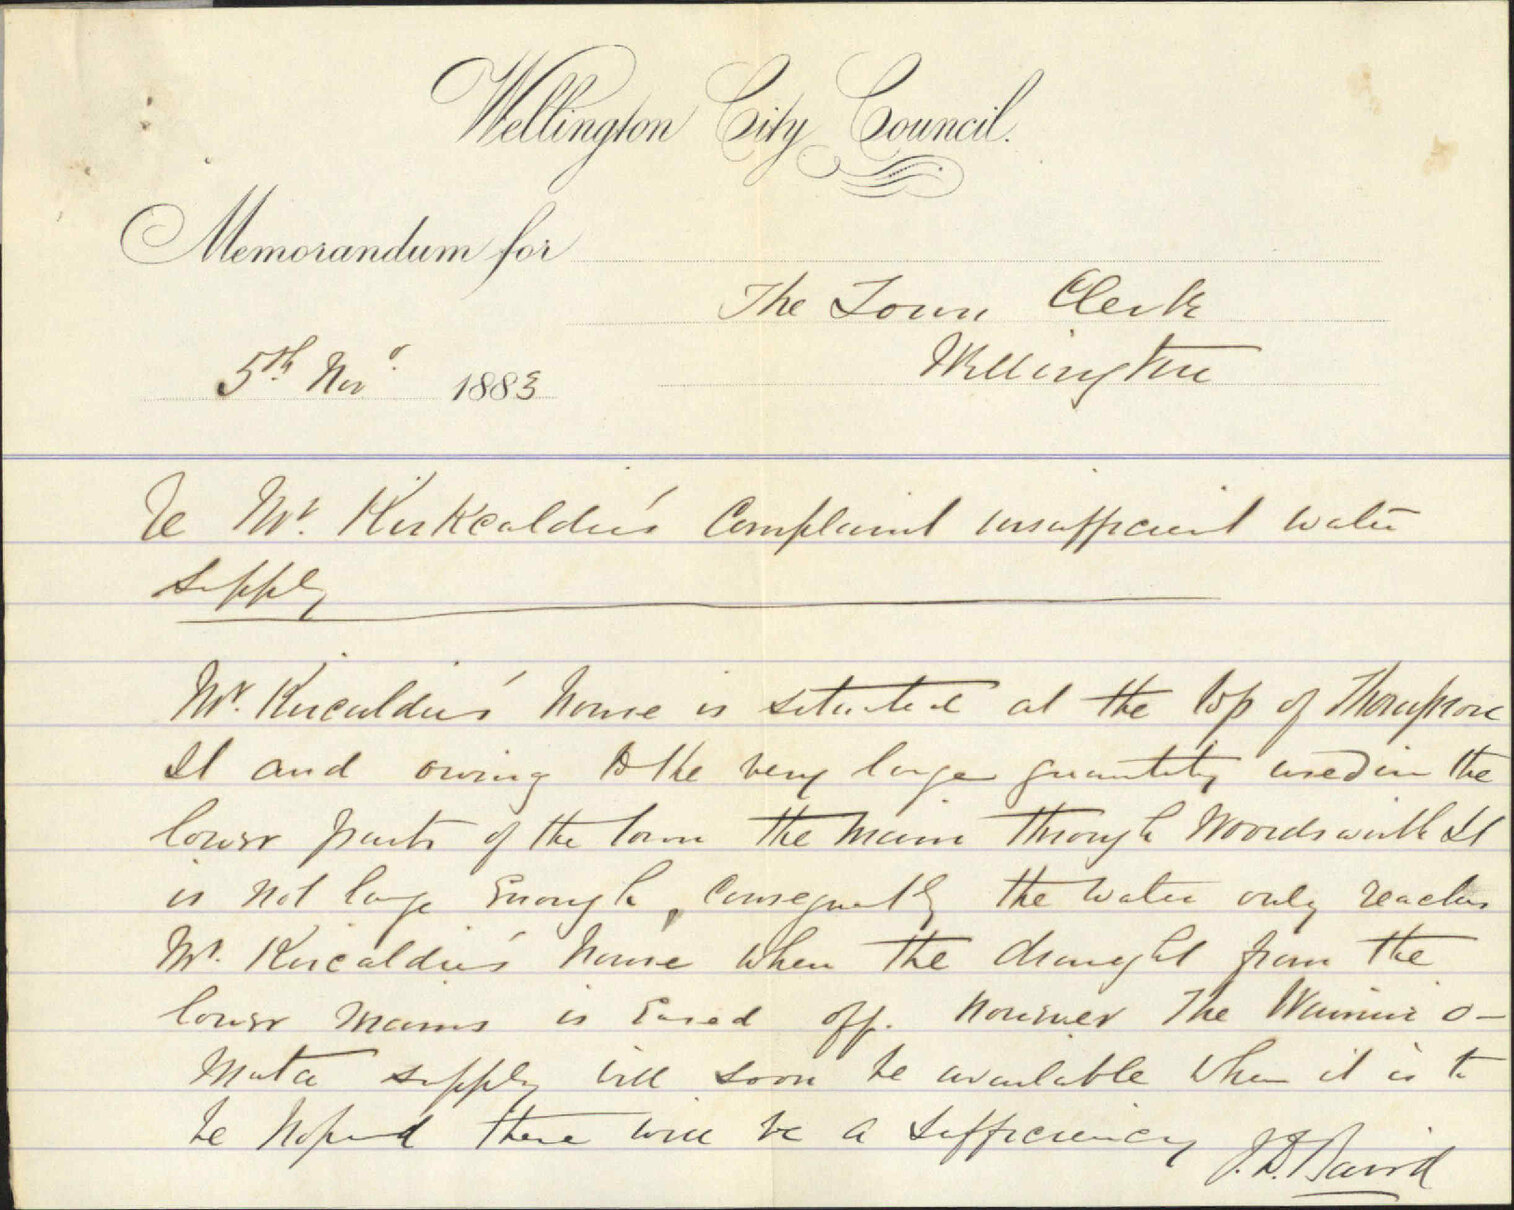 Wellington City Council.
Memorandum for
The Town Clerk
Wellington
5th Nov 1883
Re Mr. Kirkcaldie's Complaint insufficient water
supply
Mr. Kircaldie's house is situated at the top of Thompson
St and owing to the very large quantity used in the
lower parts of the town the main through Woordsworth St
is not large Enough, Consequently the water only reaches
Mr. Kircaldie's house when the draught from the
lower mains is Eased off. however The Wainui o-
mata supply will soon be available when it is to
be hoped there will be a sufficiency
J.D. Baird